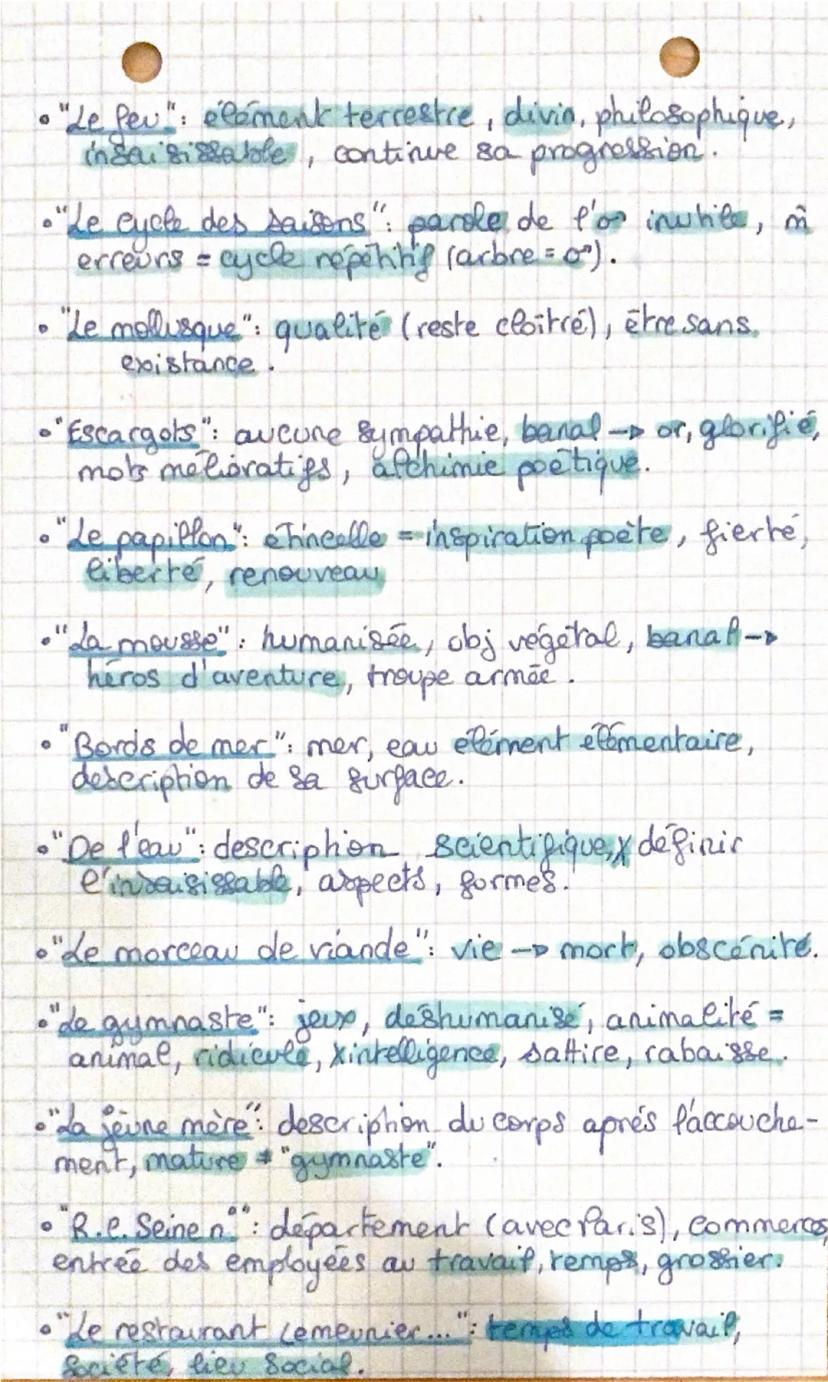 • "Le feu": élément terrestre, divin, philosophique,
insaisissable, continue sa progression.
• "Le cycle des saisons": parole de l'♂ inutile, m̂
erreurs = cycle répétitif (arbre = ♂).
• "Le mollusque": qualité (reste cloîtré), être sans
existance.
• "Escargots": aucune sympathie, banal → or, glorifié,
mots mélioratifs, alchimie poétique.
• "Le papillon": étincelle = inspiration poète, fierté,
liberté, renouveau
• "La mousse": humanisée, obj végétal, banal →
héros d'aventure, troupe armée.
• "Bords de mer": mer, eau élément élémentaire,
description de sa surface.
• "De l'eau": description scientifique, X définir
l'insaisissable, aspects, formes.
• "Le morceau de viande": vie → mort, obscénité.
• "Le gymnaste": jeux, déshumanisé, animalité =
animal, ridicule, X intelligence, sattire, rabaisse.
• "La jeune mère": description du corps aprés l'accouche-
ment, mature ≠ "gymnaste".
• "R.C. Seine n°": département (avec Paris), commerces,
entrée des employées au travail, temps, grossier.
• "Le restaurant Lemeunier...": temps de travail,
société, lieu social.